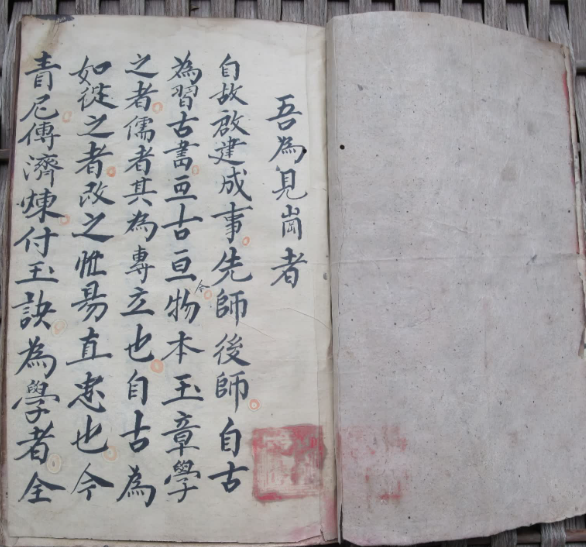 吾為見崗者
自故啟建成事先師後師自古
為習古書亘古亘今物本玉章學
之者儒者其為專立也自古為
如從之者改之惟易直忠也今
青尼傳濟煉付玉訣為學者全